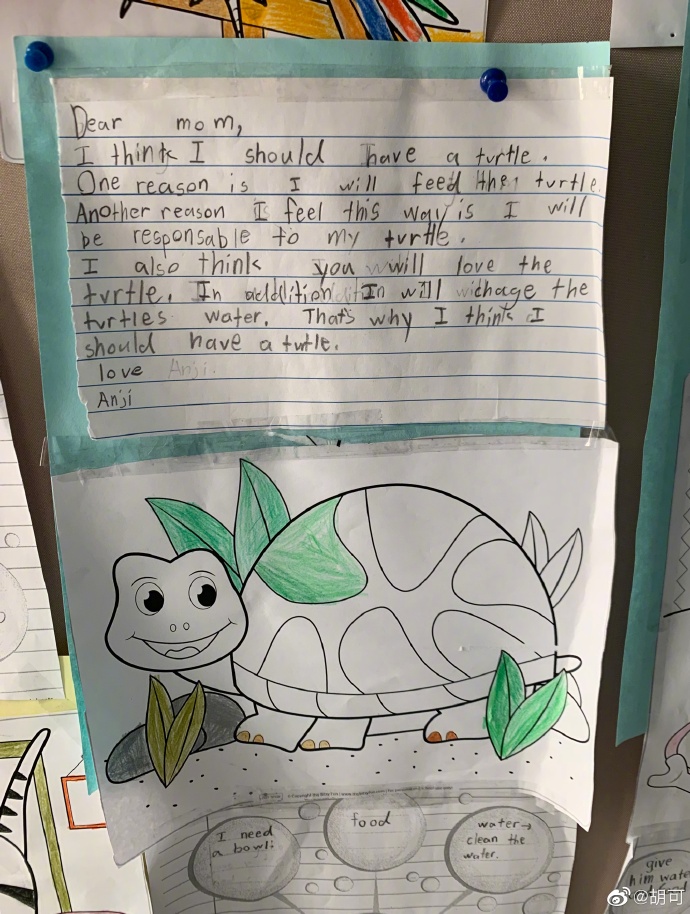 Dear mom,
I think I should have a turtle.
One reason is I will feed the turtle.
Another reason I feel this way is I will
be responsable to my turtle.
I also think you will love the
turtle. In addition I will chage the
turtles water. That's why I think I
should have a turtle.
love Anji.
Anji
I need
a bowl.
food
water→
clean the
water.
give
him wate
@胡可